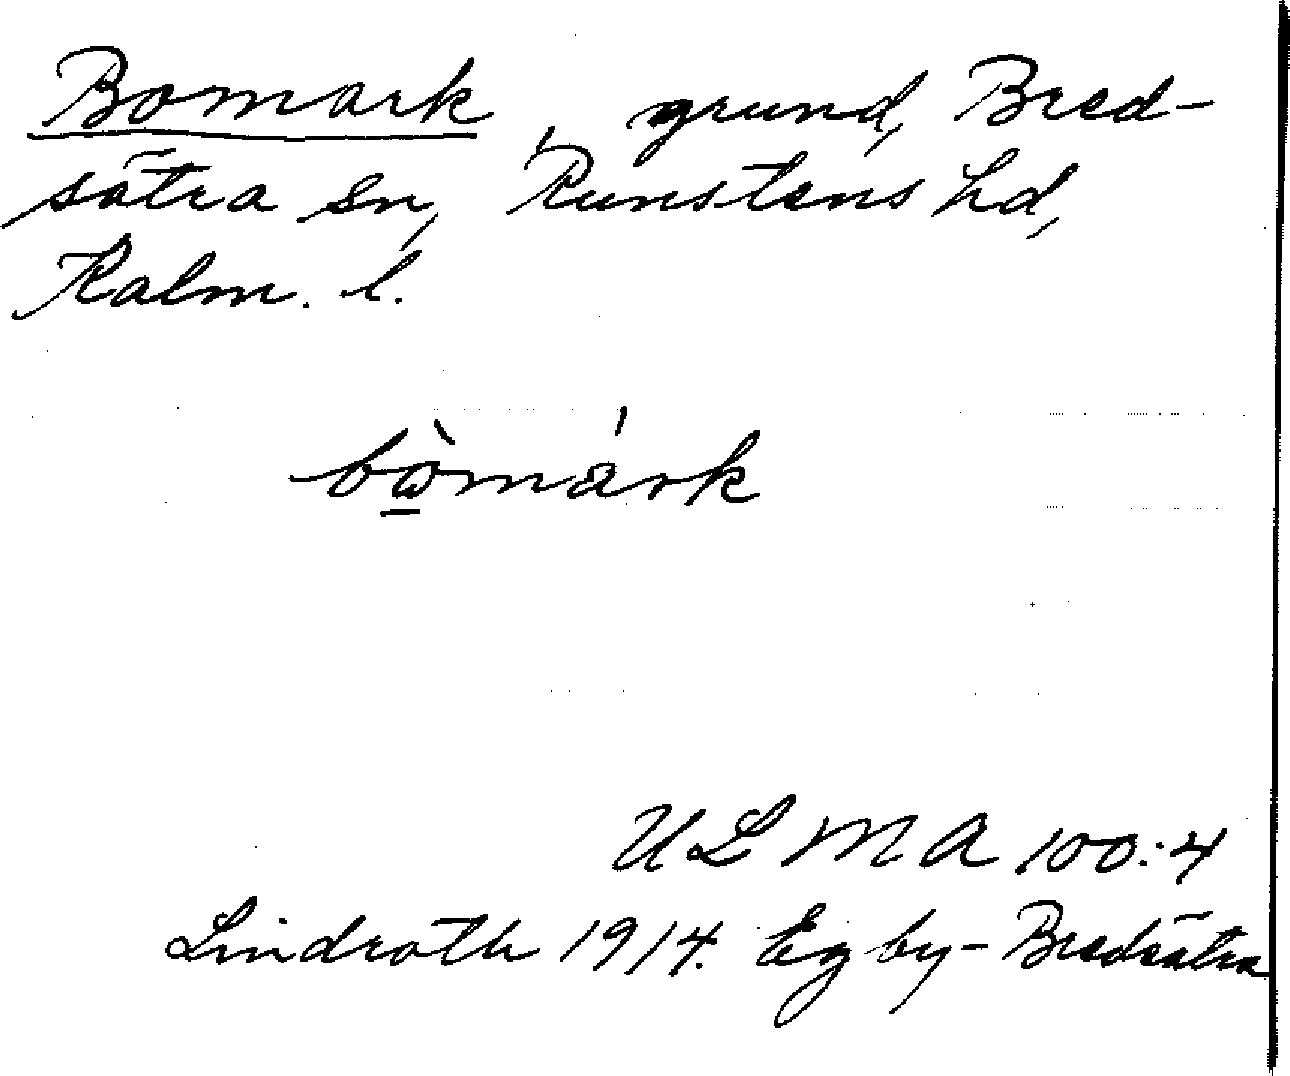 Bomark, grund, Bred-
sätra sn, Runstens hd,
Kalm. l.
bὼ̱márk
ULMA 100:4
Lindroth 1914. Egby-Bredsätra